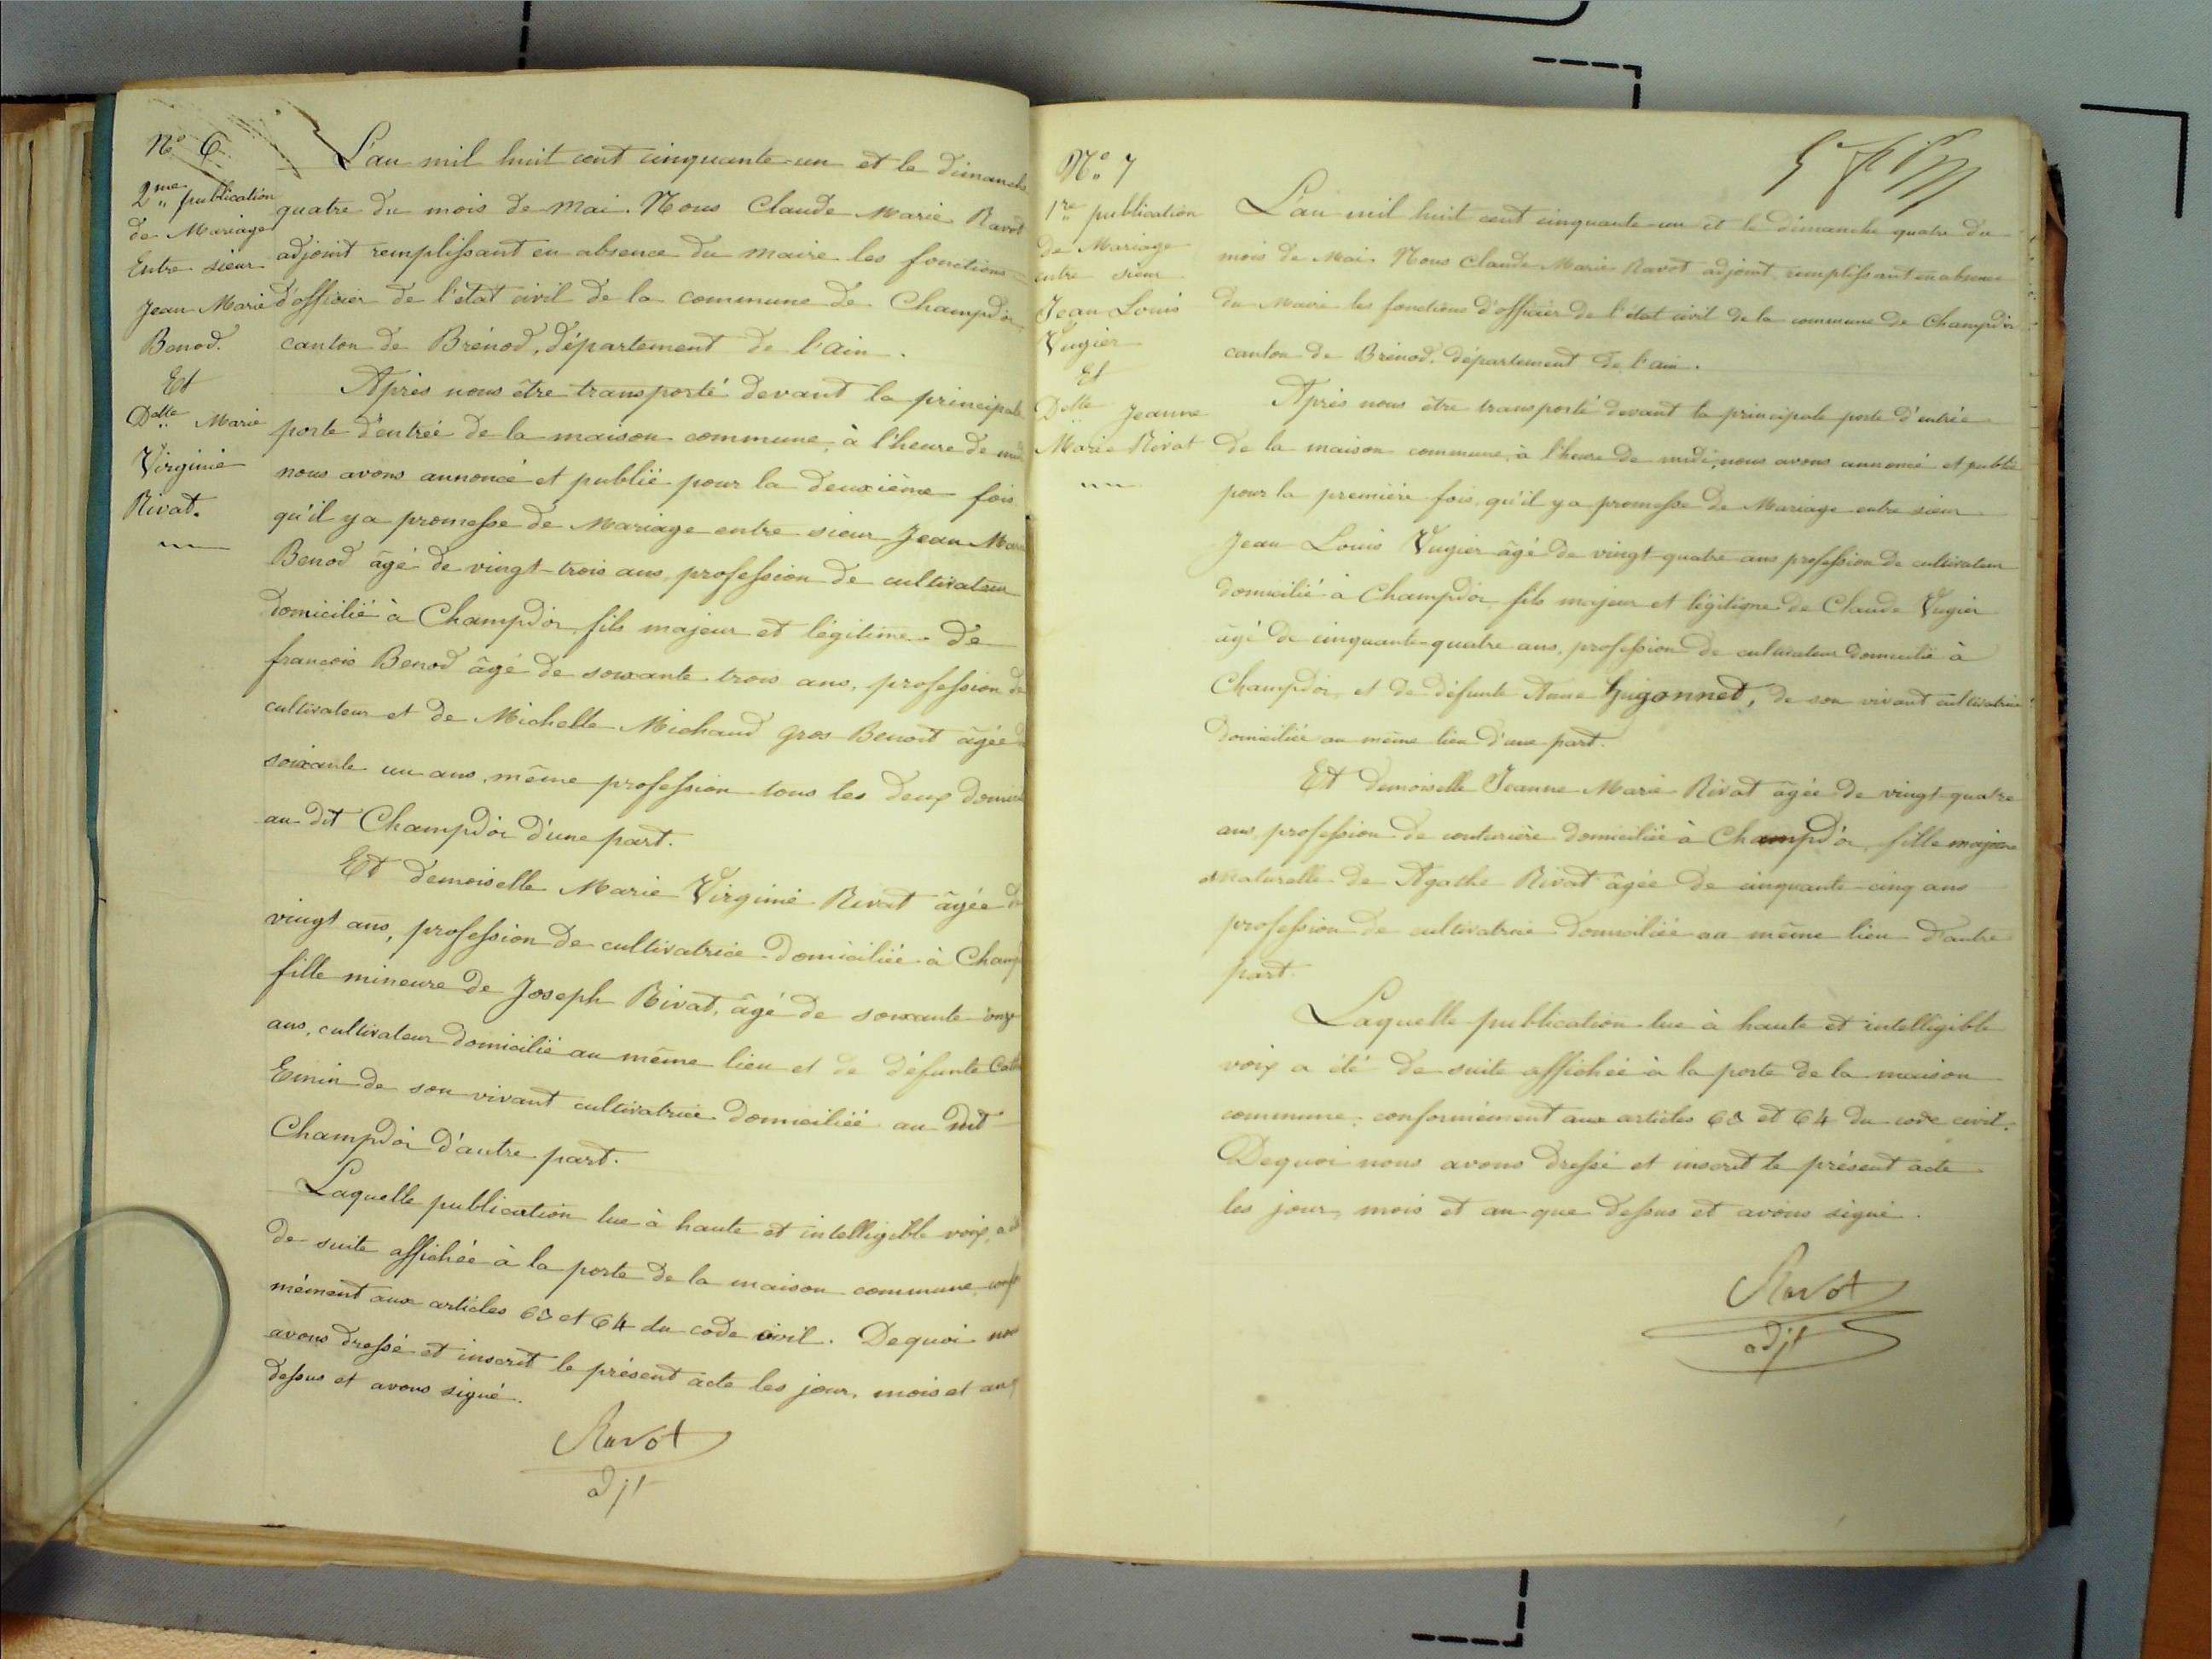 N.º 6
2.me publication
de Mariage
Entre sieur
Jean Marie
Benod.
Et
Delle Marie
Virginie
Rivat.
L'an mil huit cent cinquante-un et le dimanche
quatre du mois de mai. Nous Claude Marie Ravot
adjoint remplissant en absence du maire les fonctions
d'officier de l'état civil de la commune de Champdor,
canton de Brénod, département de l'ain.
Après nous être transporté devant la principale
porte d'entrée de la maison commune, à l'heure de
nous avons annoncé et publié pour la deuxième fois
qu'il y a promesse de Mariage entre sieur Jean
Benod âgé de vingt-trois ans, profession de cultivateur
domicilié à Champdor, fils majeur et légitime de
francois Benod âgé de soixante trois ans, profession de
cultivateur et de Michelle Michaud gros Benoit âgée
soixante un ans, même profession tous les deux
au dit Champdor d'une part.
Et demoiselle Marie Virginie Rivat âgée de
vingt ans, profession de cultivatrice domiciliée à
fille mineure de Joseph Rivat, âgé de soixante onze
ans, cultivateur domicilié au même lieu et de défunte
Emin de son vivant cultivatrice domiciliée au dit
Champdor d'autre part.
Laquelle publication lue à haute et intelligible voix,
de suite affichée à la porte de la maison commune,
mément aux articles 63 et 64 du code civil. De quoi
avons dressé et inscrit le présent acte les jour, mois et an
dessus et avons signé.
Ravot
adjt
N.º 7
1re publication
de Mariage
entre sieur
Jean Louis
Vugier
Et
Delle Jeanne
Marie Rivat
L'an mil huit cent cinquante-un et le dimanche quatre du
mois de Mai. Nous Claude Marie Ravot adjoint remplissant en absence
du Maire les fonctions d'officier de l'état civil de la commune de Champdor
canton de Brénod, département de l'ain.
Après nous être transporté devant la principale porte d'entrée
de la maison commune, à l'heure de midi, nous avons annoncé et publié
pour la première fois, qu'il y a promesse de Mariage entre sieur
Jean Louis Vugier âgé de vingt-quatre ans profession de cultivateur
domicilié à Champdor, fils majeur et légitime de Claude Vugier
âgé de cinquante-quatre ans, profession de cultivateur domicilié à
Champdor, et de défunte Anne Guigonnet, de son vivant cultivatrice
domiciliée au même lieu d'une part.
Et demoiselle Jeanne Marie Rivat âgée de vingt-quatre
ans, profession de couturière domiciliée à Champdor, fille majeure
naturelle de Agathe Rivat âgée de cinquante-cinq ans
profession de cultivatrice domiciliée au même lieu d'autre
part.
Laquelle publication lue à haute et intelligible
voix a été de suite affichée à la porte de la maison
commune, conformément aux articles 63 et 64 du code civil.
De quoi nous avons dressé et inscrit le présent acte
les jour, mois et an que dessus et avons signé.
Ravot
adjt